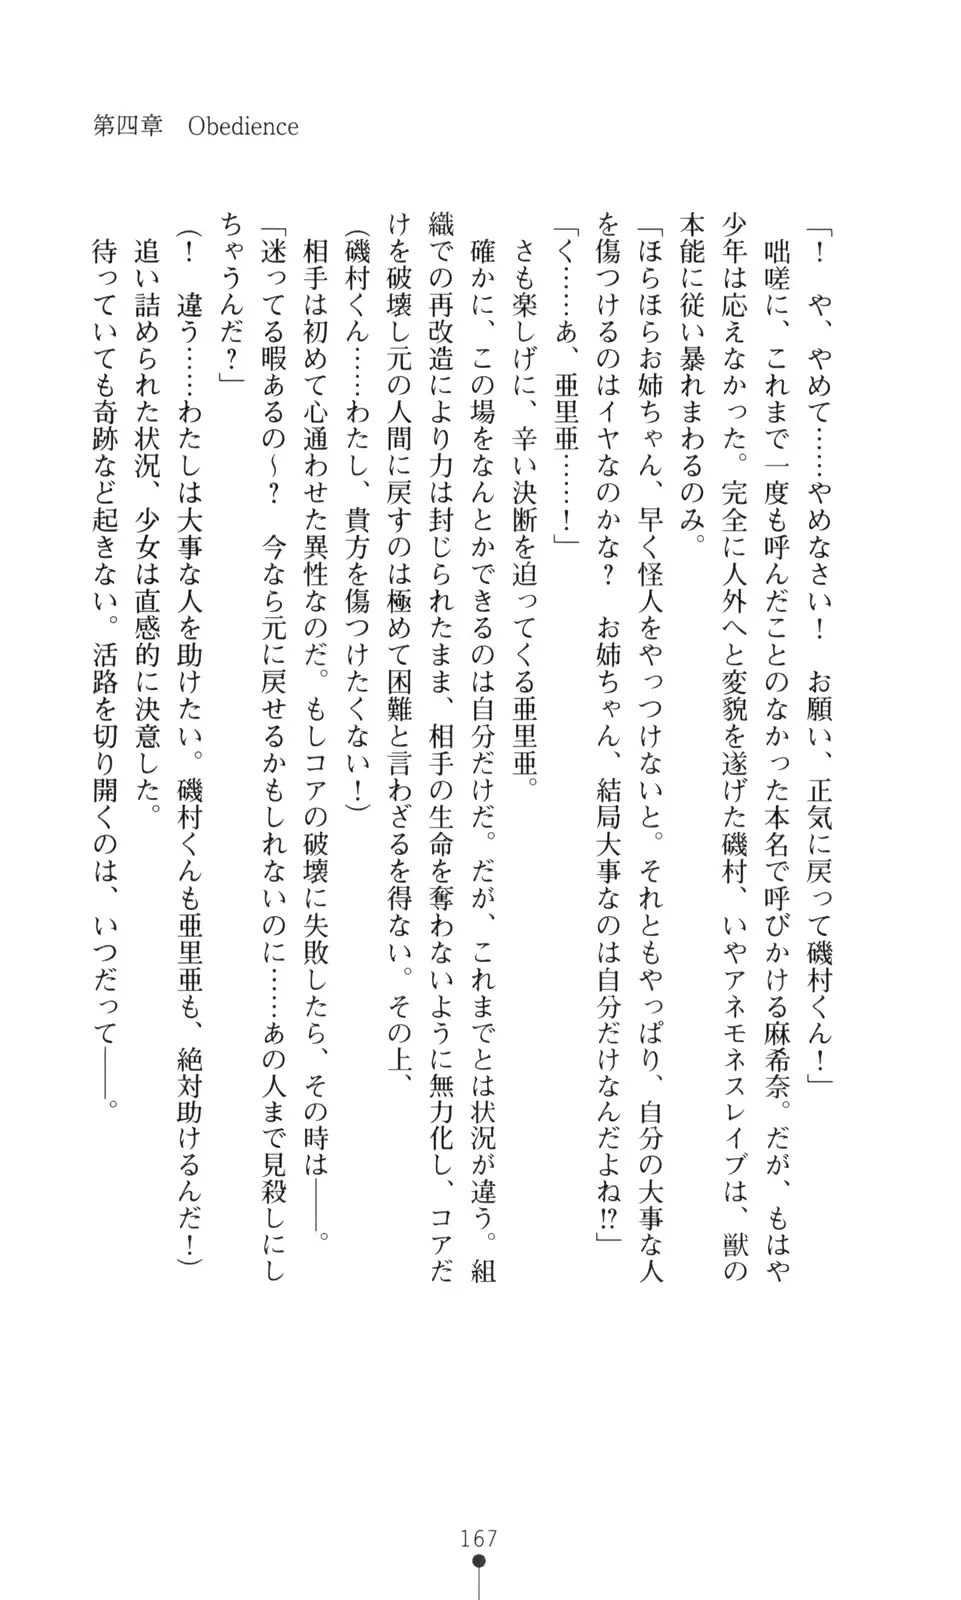 第四章　Obedience
「！　や、やめて……やめなさい！　お願い、正気に戻って磯村くん！」
　咄嗟に、これまで一度も呼んだことのなかった本名で呼びかける麻希奈。だが、もはや
少年は応えなかった。完全に人外へと変貌を遂げた磯村、いやアネモネスレイブは、獣の
本能に従い暴れまわるのみ。
「ほらほらお姉ちゃん、早く怪人をやっつけないと。それともやっぱり、自分の大事な人
を傷つけるのはイヤなのかな？　お姉ちゃん、結局大事なのは自分だけなんだよね!?」
「く……あ、亜里亜……！」
　さも楽しげに、辛い決断を迫ってくる亜里亜。
　確かに、この場をなんとかできるのは自分だけだ。だが、これまでとは状況が違う。組
織での再改造により力は封じられたまま、相手の生命を奪わないように無力化し、コアだ
けを破壊し元の人間に戻すのは極めて困難と言わざるを得ない。その上、
（磯村くん……わたし、貴方を傷つけたくない！）
　相手は初めて心通わせた異性なのだ。もしコアの破壊に失敗したら、その時は――。
「迷ってる暇あるの～？　今なら元に戻せるかもしれないのに……あの人まで見殺しにし
ちゃうんだ？」
（！　違う……わたしは大事な人を助けたい。磯村くんも亜里亜も、絶対助けるんだ！）
　追い詰められた状況、少女は直感的に決意した。
　待っていても奇跡など起きない。活路を切り開くのは、いつだって――。
167